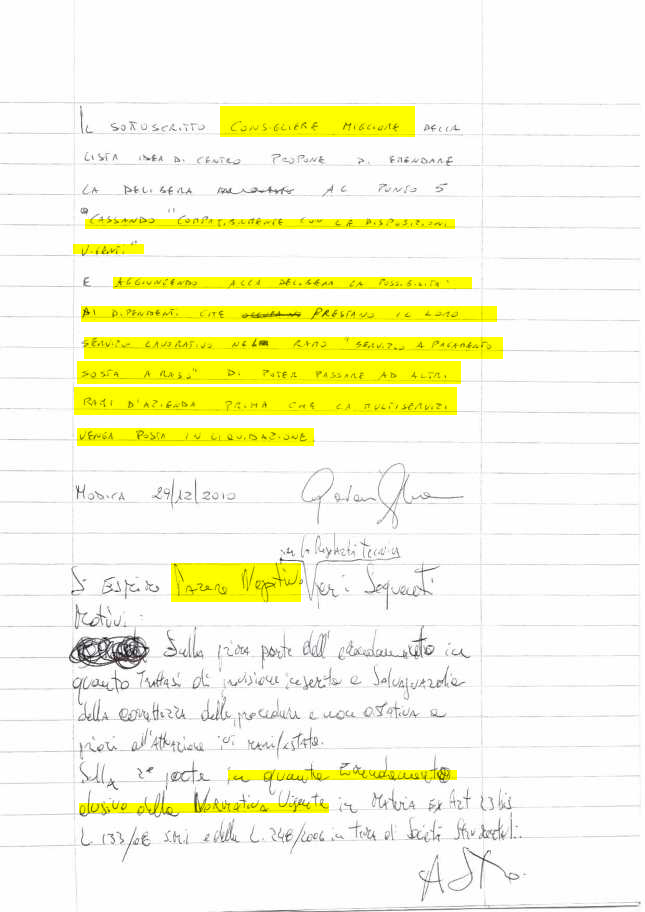 IL SOTTOSCRITTO CONSIGLIERE MIGLIORE DELLA
LISTA IDEA DI CENTRO PROPONE DI EMENDARE
LA DELIBERA AL PUNTO 5
CASSANDO "COMPATIBILMENTE CON LE DISPOSIZIONI
VIGENTI"
E AGGIUNGENDO ALLA DELIBERA LA POSSIBILITA'
DI DIPENDENTI CHE PRESTANO IL LORO
SERVIZIO LAVORATIVO NEL RAMO "SERVIZIO A PAGAMENTO
SOSTA A RASO" DI POTER PASSARE AD ALTRI
RAMI D'AZIENDA PRIMA CHE LA MULTISERVIZI
VENGA POSTA IN LIQUIDAZIONE.
MODICA 29/12/2010
per la Regolarità Tecnica
Si Esprime Parere Negativo per i Seguenti
Motivi:
Sulla prima parte dell'emendamento in
quanto Trattasi di previsione inserita a Salvaguardia
della correttezza delle procedure e non ostativa a
priori all'Attuazione ivi manifestata.
Sulla 2ª parte in quanto Emendamento
elusivo della Normativa Vigente in Materia Ex Art 23 bis
L 133/08 S.M.I e della L. 248/2006 in Tema di Società Strumentali.